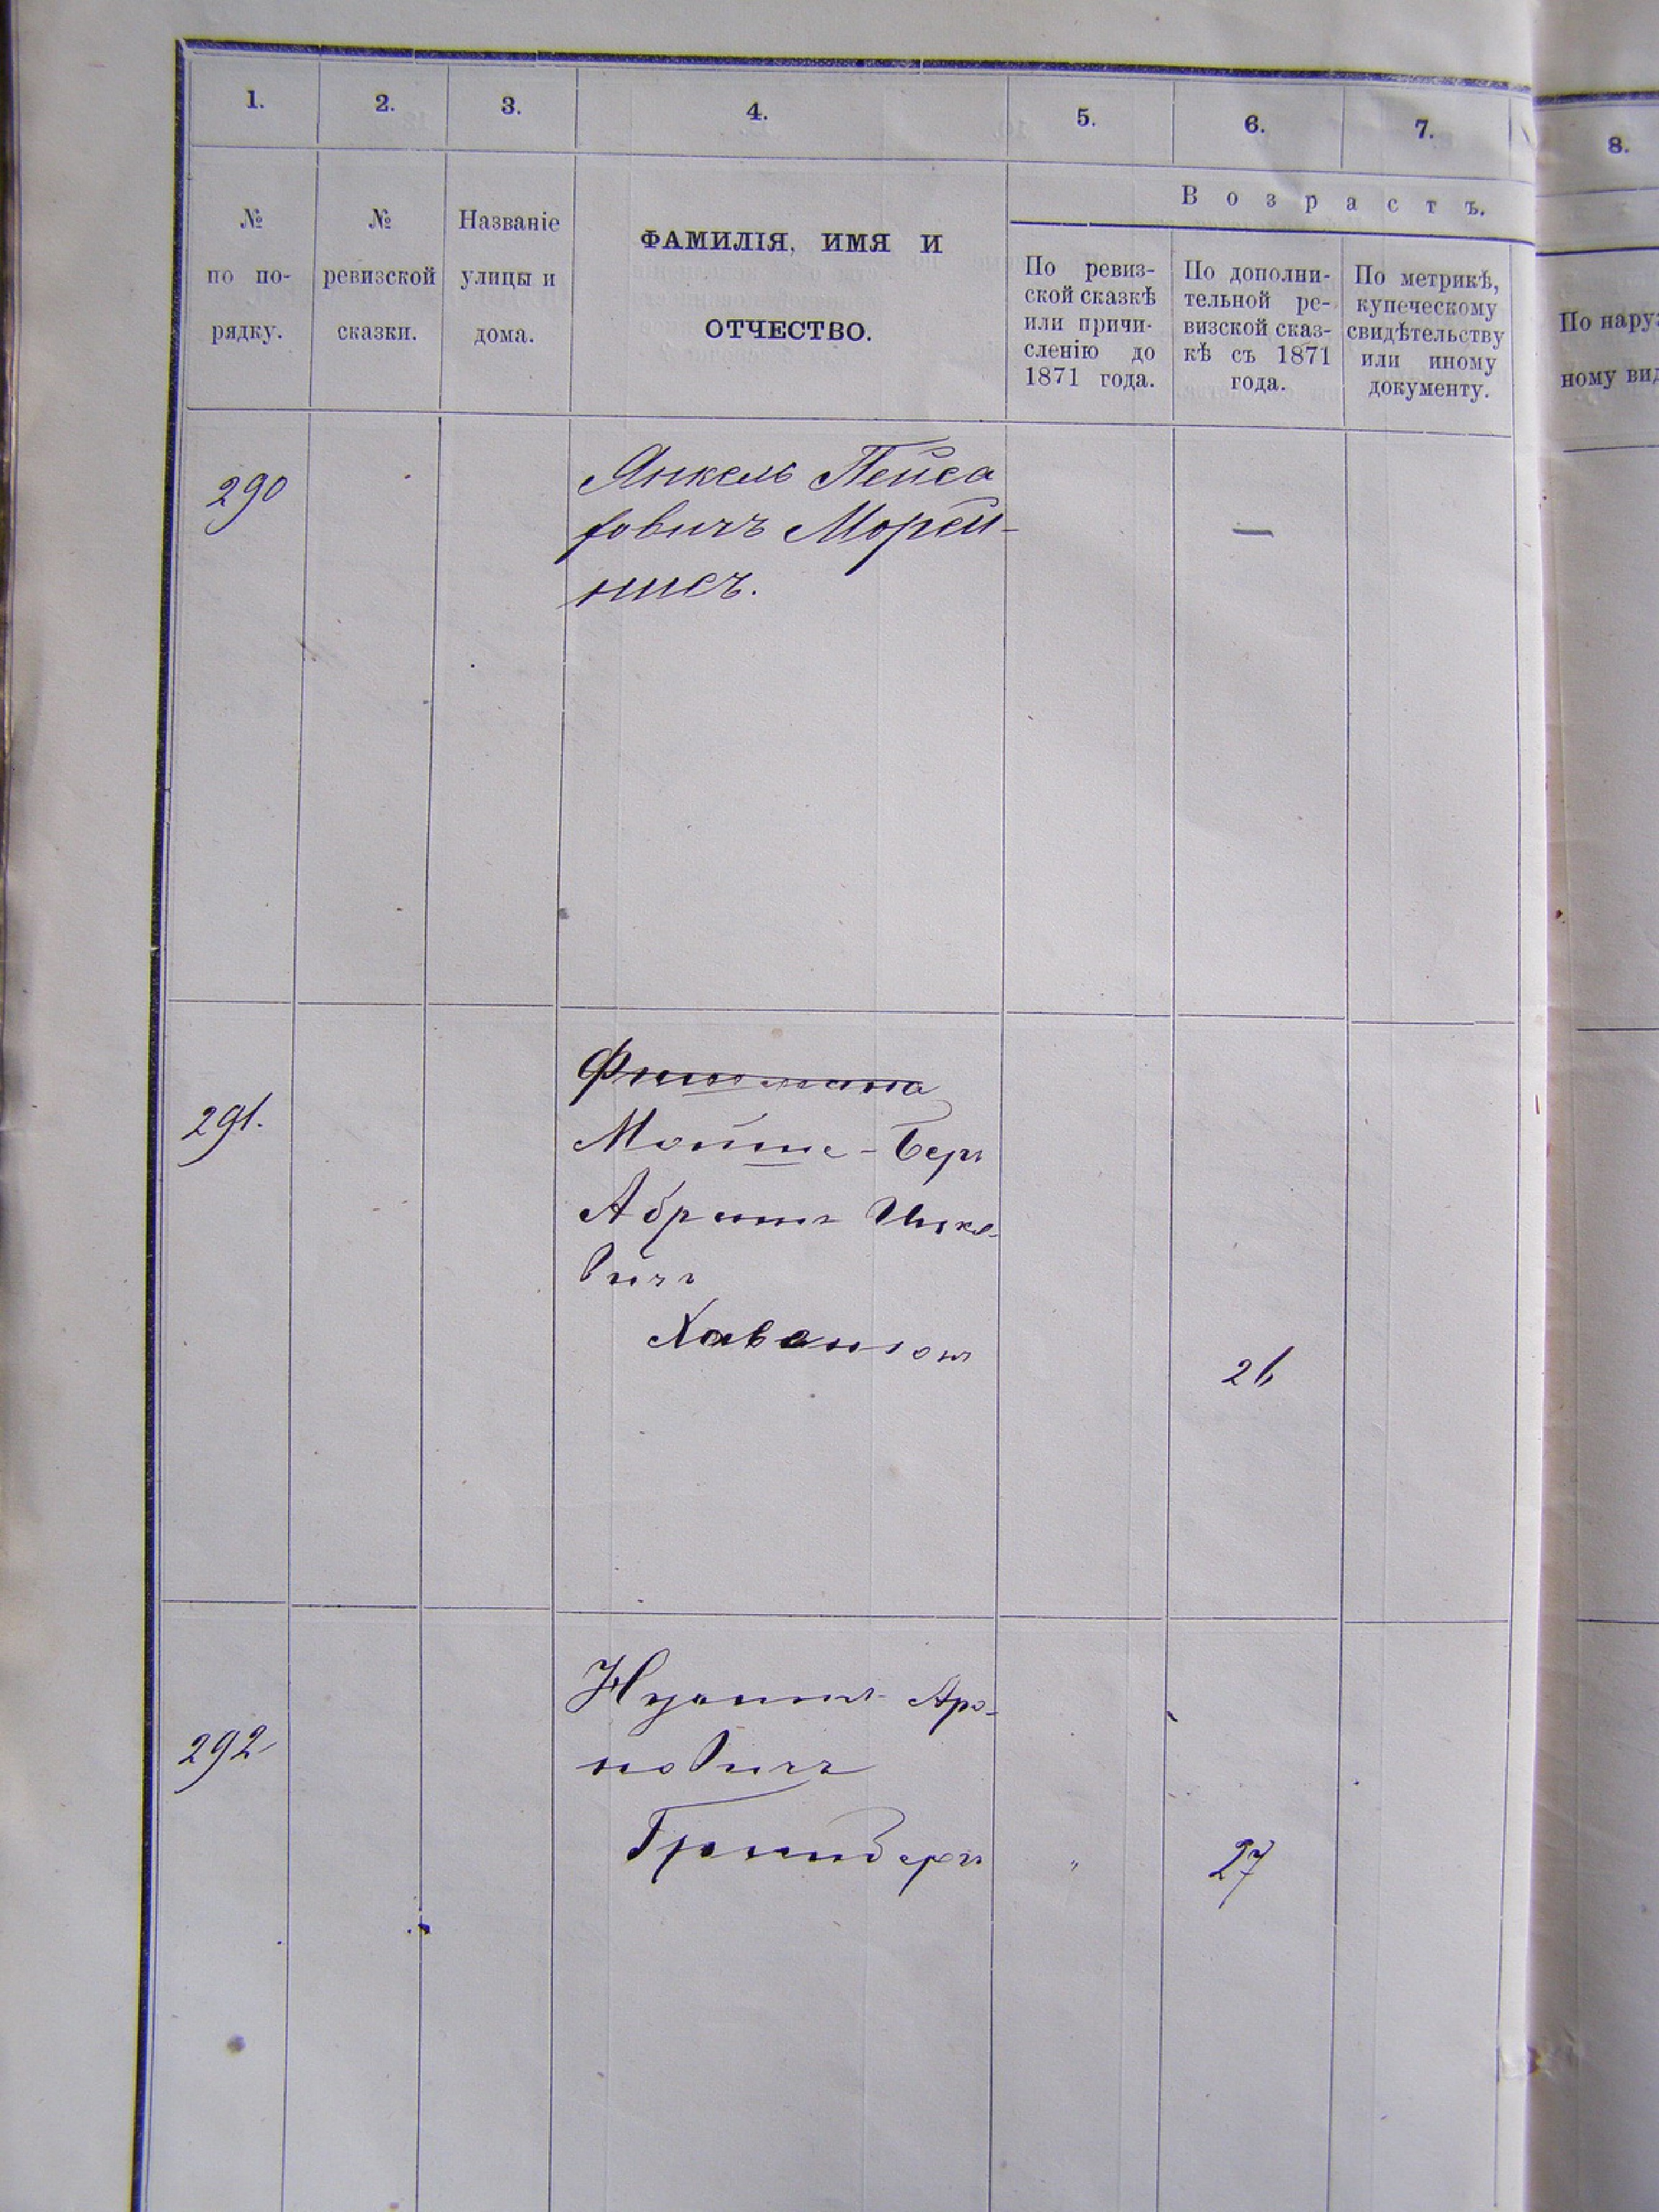 1. 2. 3. 4. 5. 6. 7. 8.
Возрастъ.
№ по по-рядку.
№ ревизской сказки.
Названіе улицы и дома.
ФАМИЛІЯ, ИМЯ И
ОТЧЕСТВО.
По ревиз-
ской сказкѣ
или причи-
сленію до
1871 года.
По дополни-
тельной ре-
визской сказ-
кѣ съ 1871
года.
По метрикѣ,
купеческому
свидѣтельству
или иному
документу.
По наруж
ному вид
290
Янкель Пейса
ховичъ Морей-
нисъ.
—
291.
Мойше-Беръ
Абрамъ Ицко-
вичъ
26
292
Арo-
новичъ
"
27